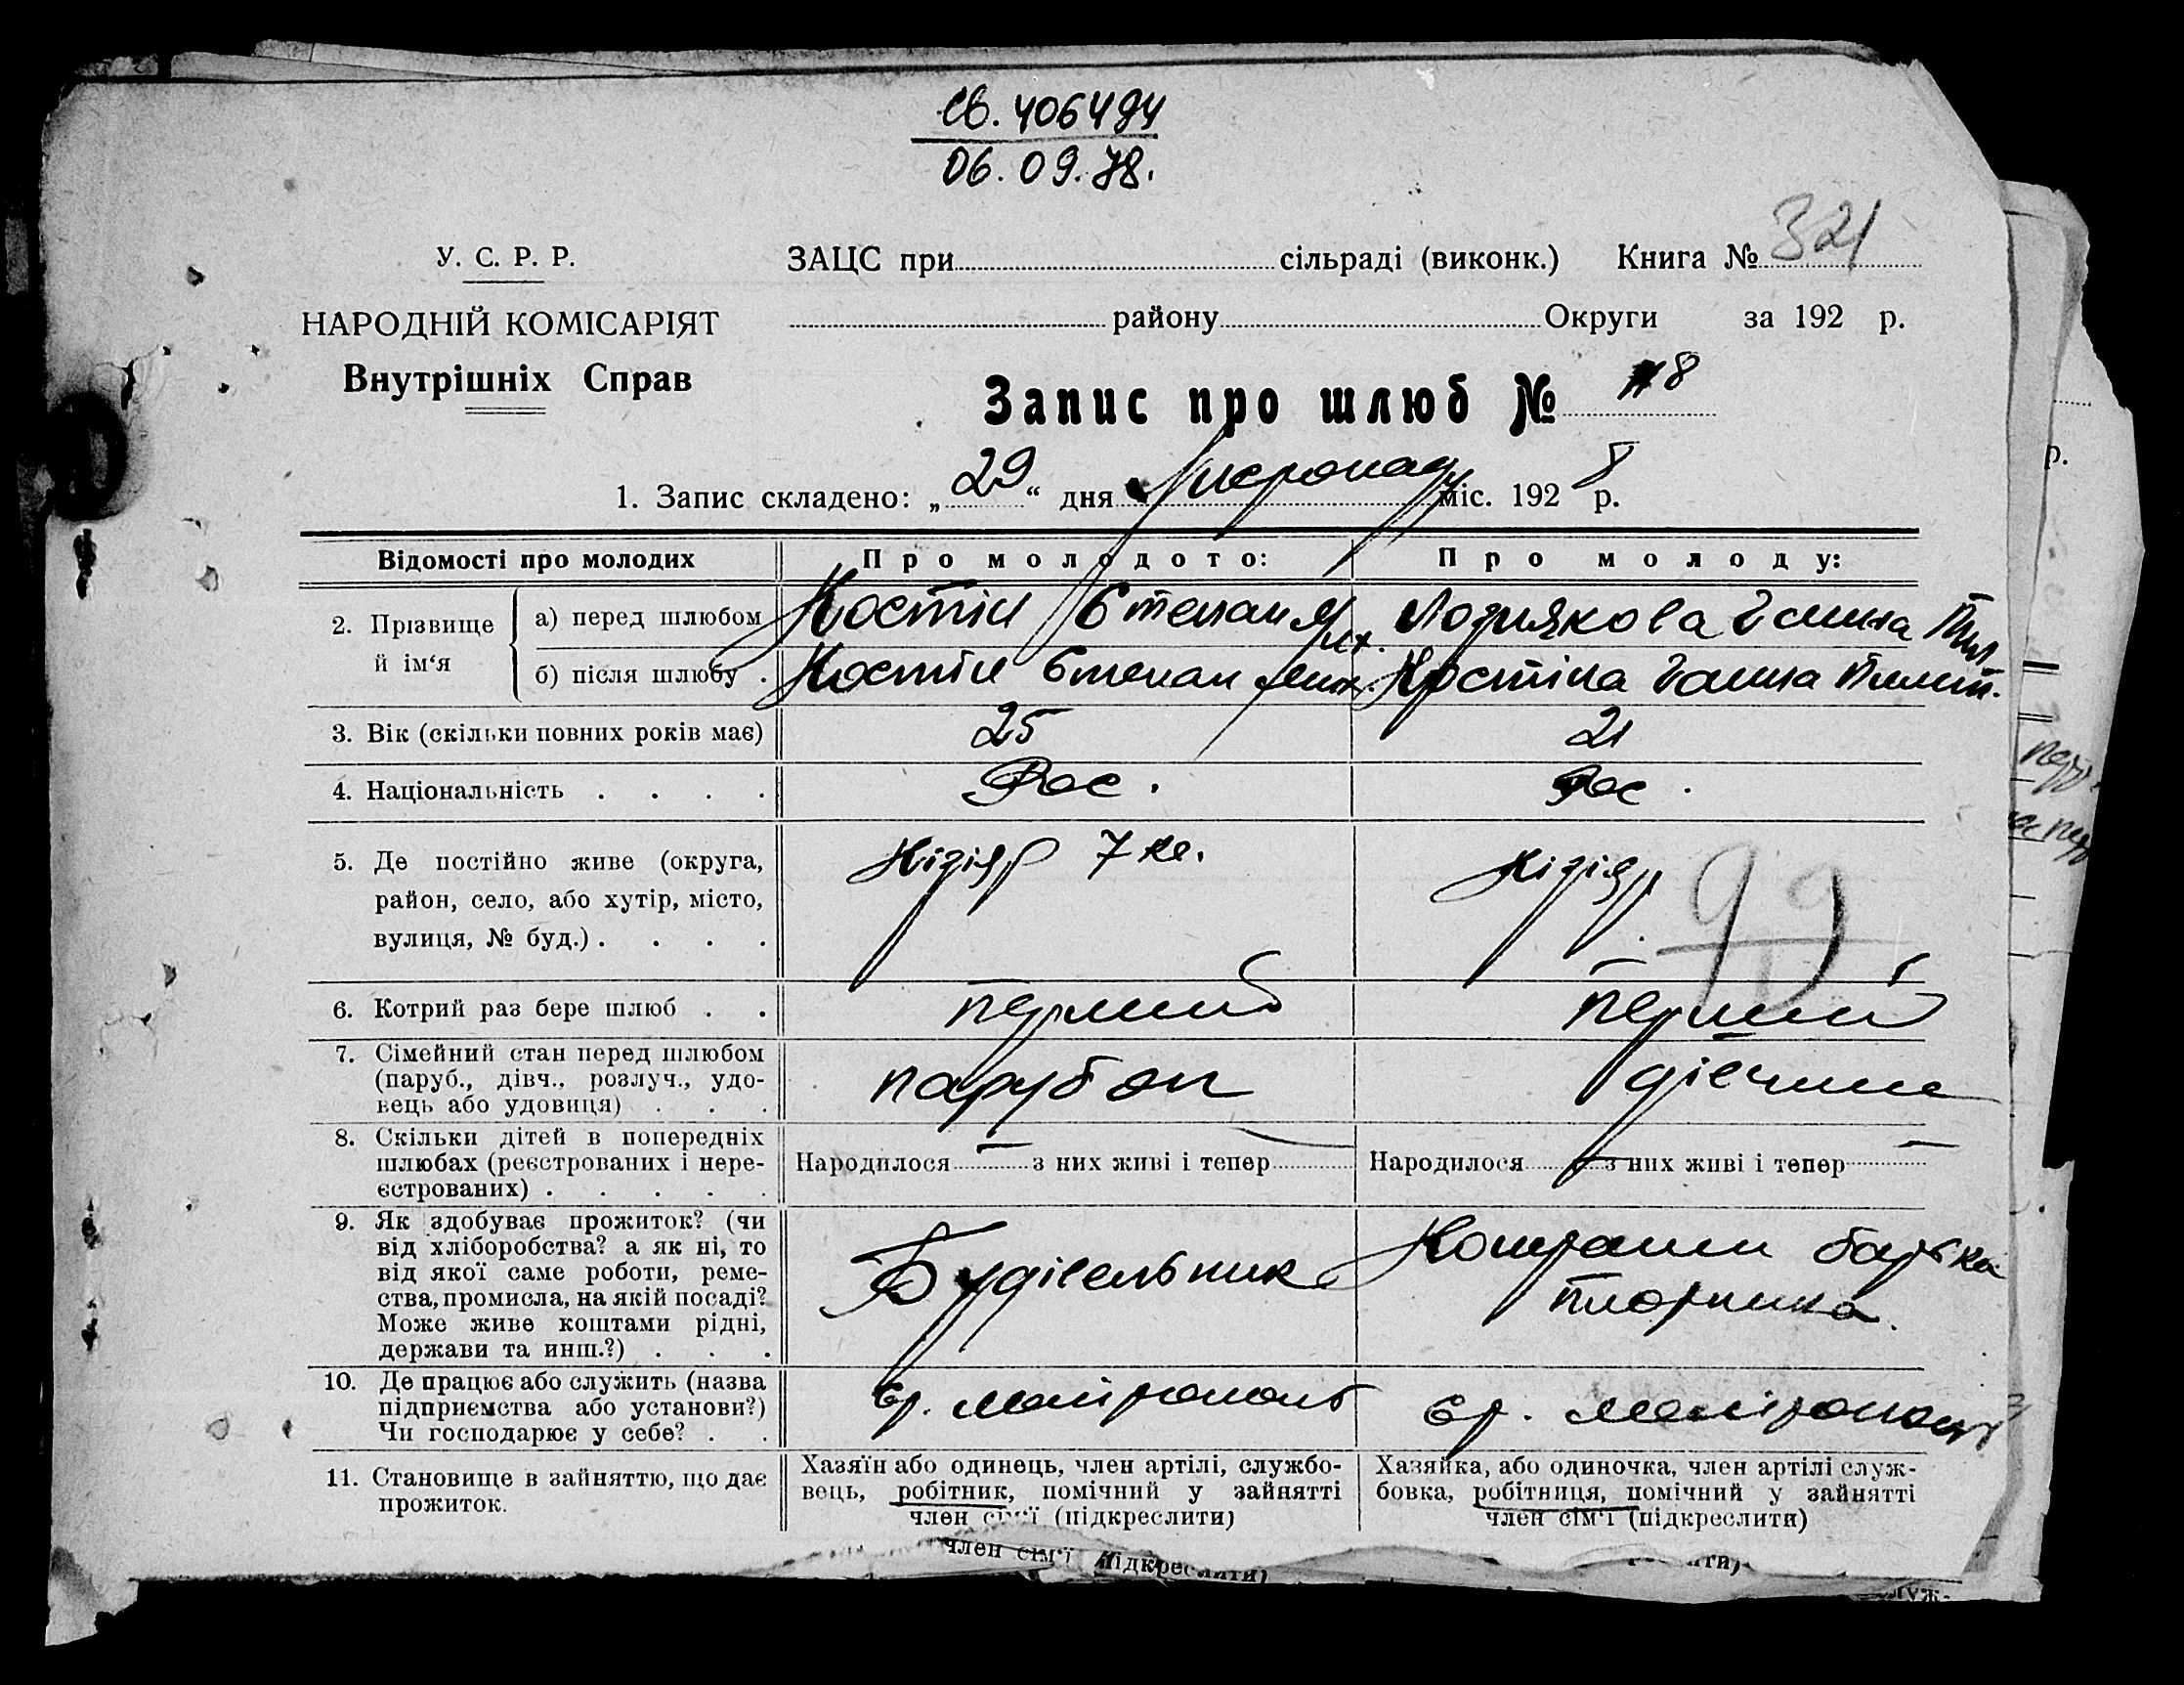 Св. 406494
06.09.78.
У. С. Р. Р.
ЗАЦС при сільраді (виконк.) Книга № 321
НАРОДНІЙ КОМІСАРІЯТ
району Округи за 192 р.
Внутрішніх Справ
Запис про шлюб № 118
1. Запис складено: „29“ дня Листопаду міс. 1928 р.
Відомості про молодих
Про молодого:
Про молоду:
2. Прізвище й ім‘я
а) перед шлюбом Костін Степан Мих. Познякова Ганна Пил
б) після шлюбу . Костін Степан Мих. Костіна Ганна Пилип.
3. Вік (скільки повних років має) 25 21
4. Національність . . . . Рос. Рос.
5. Де постійно живе (округа,
район, село, або хутір, місто,
вулиця, № буд.) . . . .
Кізіяр 7 кв.
Кізіяр
99
6. Котрий раз бере шлюб . . перший перший
7. Сімейний стан перед шлюбом
(паруб., дівч., розлуч., удо-
вець або удовиця) . . .
парубок
дівчина
8. Скільки дітей в попередніх
шлюбах (реєстрованих і нере-
єстрованих) . . . . .
Народилося — з них живі і тепер —
Народилося — з них живі і тепер —
9. Як здобуває прожиток? (чи
від хліборобства? а як ні, то
від якої саме роботи, реме-
ства, промисла, на якій посаді?
Може живе коштами рідні,
держави та инш.?) . . .
Будівельник
Коштами батька
10. Де працює або служить (назва
підприємства або установи?)
Чи господарює у себе? . .
гр. Меліτοполь
гр. Мелітополь
11. Становище в зайняттю, що дає
прожиток.
Хазяїн або одинець, член артілі, службо-
вець, робітник, помічний у зайнятті
член сім‘ї (підкреслити)
Хазяйка, або одиночка, член артілі служ-
бовка, робітниця, помічний у зайнятті
член сім‘ї (підкреслити)
член сім‘ї підкреслити)